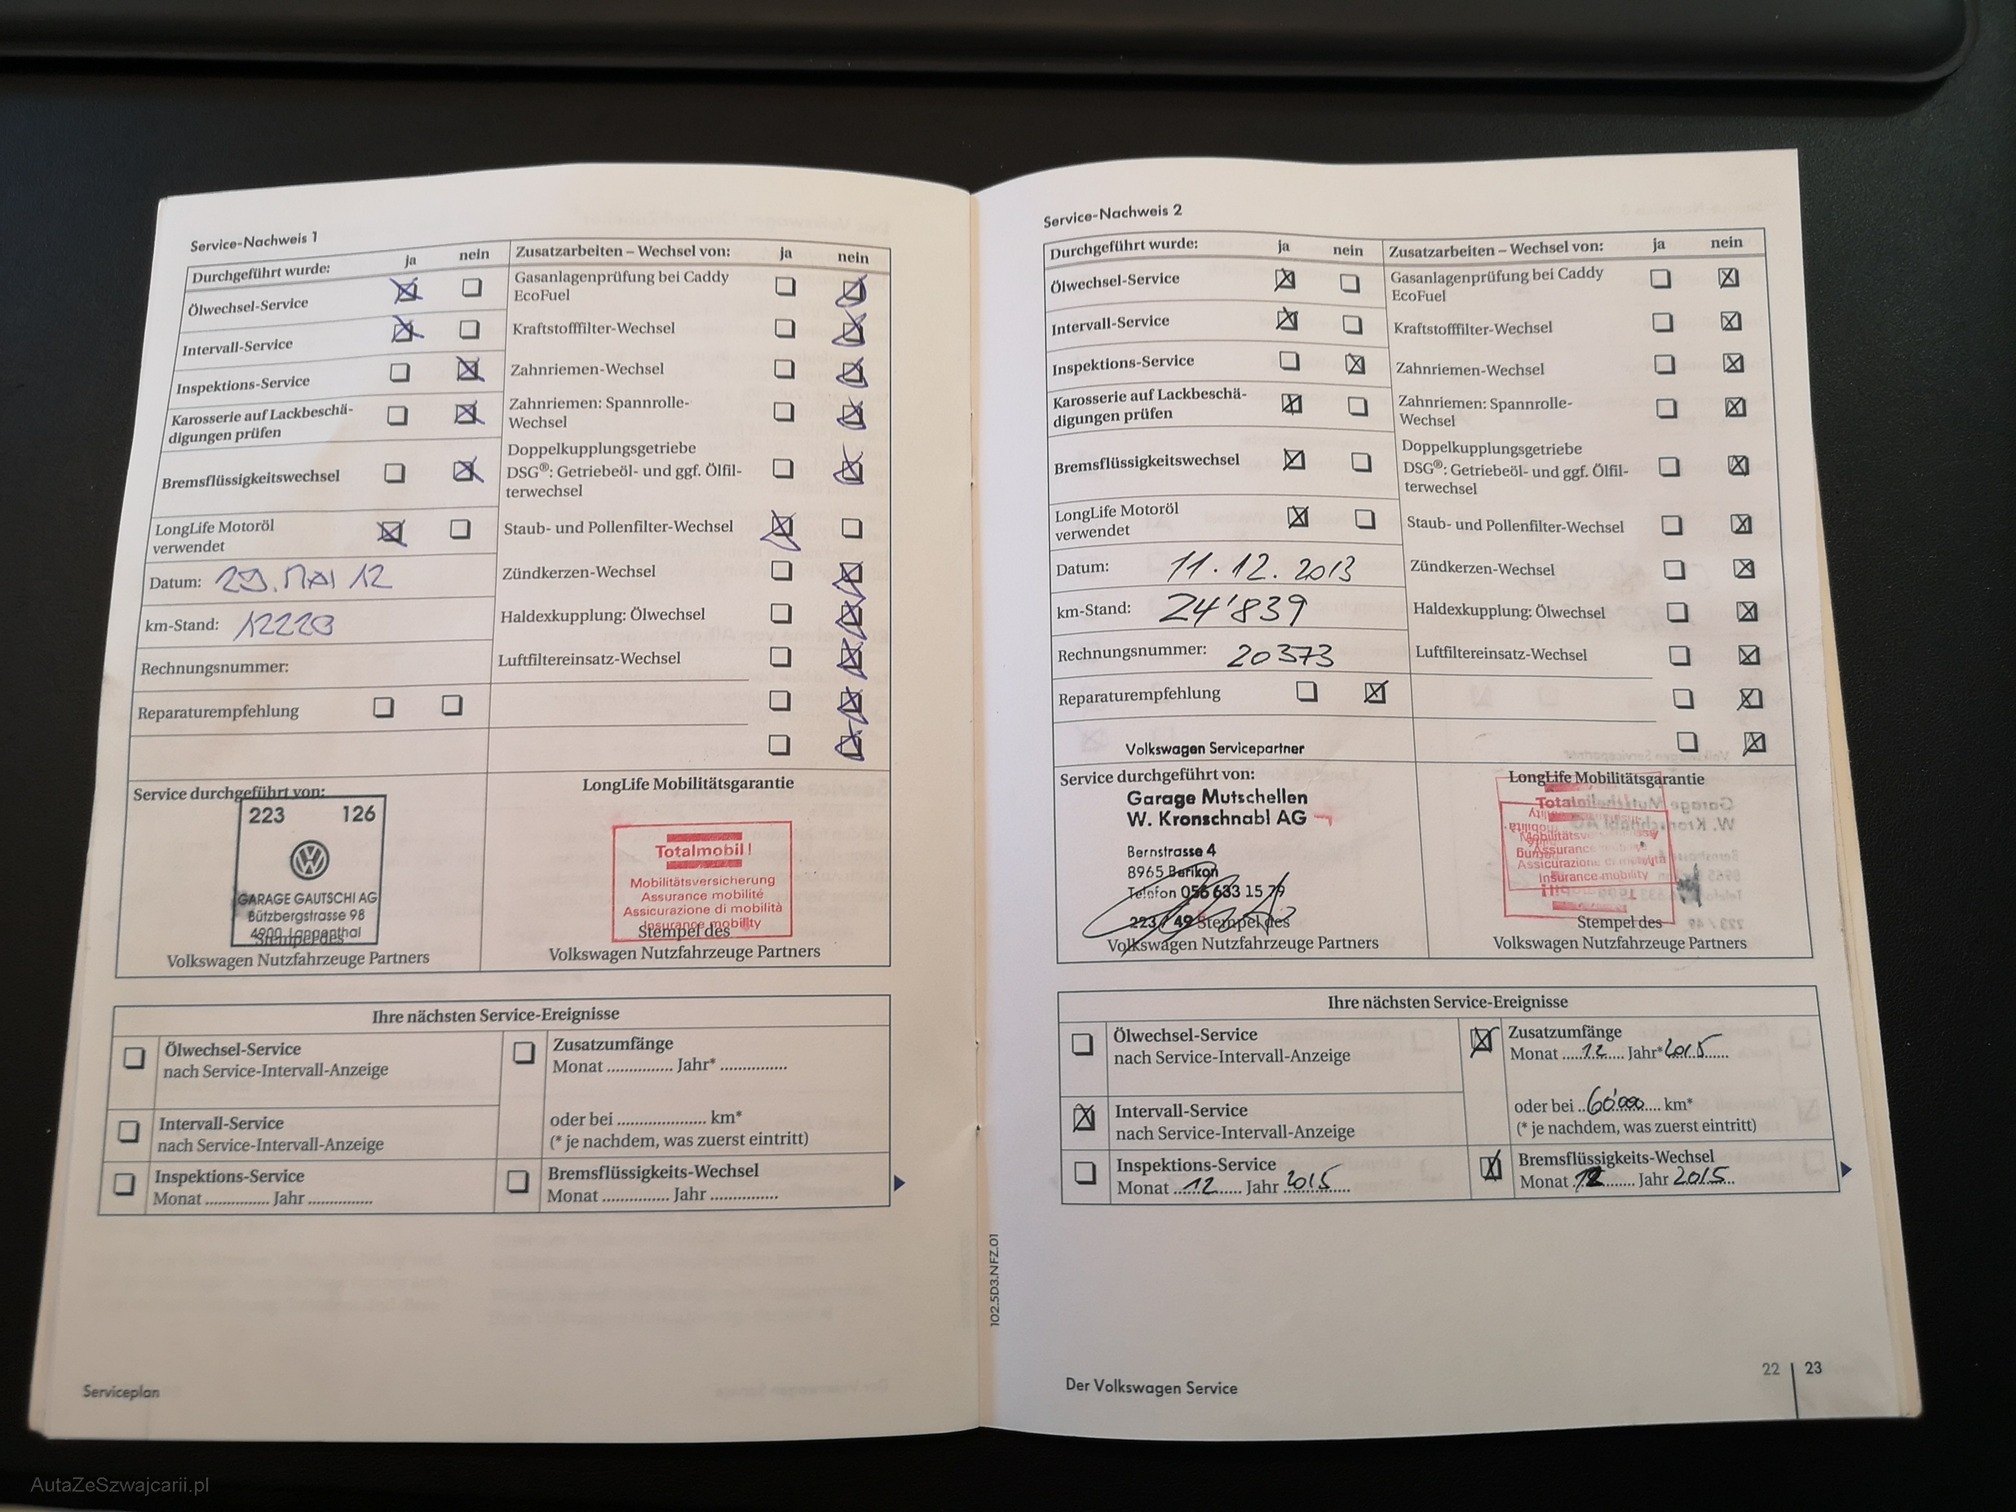 Service-Nachweis 1
Durchgeführt wurde: ja nein
Ölwechsel-Service
Intervall-Service
Inspektions-Service
Karosserie auf Lackbeschä-
digungen prüfen
Bremsflüssigkeitswechsel
LongLife Motoröl
verwendet
Datum: 29. MAI 12
km-Stand: 12220
Rechnungsnummer:
Reparaturempfehlung
Zusatzarbeiten – Wechsel von: ja nein
Gasanlagenprüfung bei Caddy
EcoFuel
Kraftstofffilter-Wechsel
Zahnriemen-Wechsel
Zahnriemen: Spannrolle-
Wechsel
Doppelkupplungsgetriebe
DSG®: Getriebeöl- und ggf. Ölfil-
terwechsel
Staub- und Pollenfilter-Wechsel
Zündkerzen-Wechsel
Haldexkupplung: Ölwechsel
Luftfiltereinsatz-Wechsel
Service durchgeführt von:
223 126
GARAGE GAUTSCHI AG
Bützbergstrasse 98
4900 Langenthal
Stempel des
Volkswagen Nutzfahrzeuge Partners
LongLife Mobilitätsgarantie
Totalmobil!
Mobilitätsversicherung
Assurance mobilité
Assicurazione di mobilità
Insurance mobility
Stempel des
Volkswagen Nutzfahrzeuge Partners
Ihre nächsten Service-Ereignisse
Ölwechsel-Service
nach Service-Intervall-Anzeige
Intervall-Service
nach Service-Intervall-Anzeige
Inspektions-Service
Monat ............... Jahr ...............
Zusatzumfänge
Monat ............... Jahr* ...............
oder bei .................... km*
(* je nachdem, was zuerst eintritt)
Bremsflüssigkeits-Wechsel
Monat ............... Jahr ...............
Serviceplan
Service-Nachweis 2
Durchgeführt wurde: ja nein
Ölwechsel-Service
Intervall-Service
Inspektions-Service
Karosserie auf Lackbeschä-
digungen prüfen
Bremsflüssigkeitswechsel
LongLife Motoröl
verwendet
Datum: 11.12.2013
km-Stand: 24'839
Rechnungsnummer: 20373
Reparaturempfehlung
Zusatzarbeiten – Wechsel von: ja nein
Gasanlagenprüfung bei Caddy
EcoFuel
Kraftstofffilter-Wechsel
Zahnriemen-Wechsel
Zahnriemen: Spannrolle-
Wechsel
Doppelkupplungsgetriebe
DSG®: Getriebeöl- und ggf. Ölfil-
terwechsel
Staub- und Pollenfilter-Wechsel
Zündkerzen-Wechsel
Haldexkupplung: Ölwechsel
Luftfiltereinsatz-Wechsel
Volkswagen Servicepartner
Service durchgeführt von:
Garage Mutschellen
W. Kronschnabl AG
Bernstrasse 4
8965 Berikon
Telefon 056 633 15 79
223 / 49 Stempel des
Volkswagen Nutzfahrzeuge Partners
LongLife Mobilitätsgarantie
Assurance
Assicurazione di mobilità
Insurance mobility
Stempel des
Volkswagen Nutzfahrzeuge Partners
Ihre nächsten Service-Ereignisse
Ölwechsel-Service
nach Service-Intervall-Anzeige
Intervall-Service
nach Service-Intervall-Anzeige
Inspektions-Service
Monat ....12...... Jahr 2015
Zusatzumfänge
Monat .....12.... Jahr* 2015
oder bei ..60'000.... km*
(* je nachdem, was zuerst eintritt)
Bremsflüssigkeits-Wechsel
Monat .12....... Jahr 2015
102.5D3.NFZ.01
Der Volkswagen Service
22 | 23
AutaZeSzwajcarii.pl